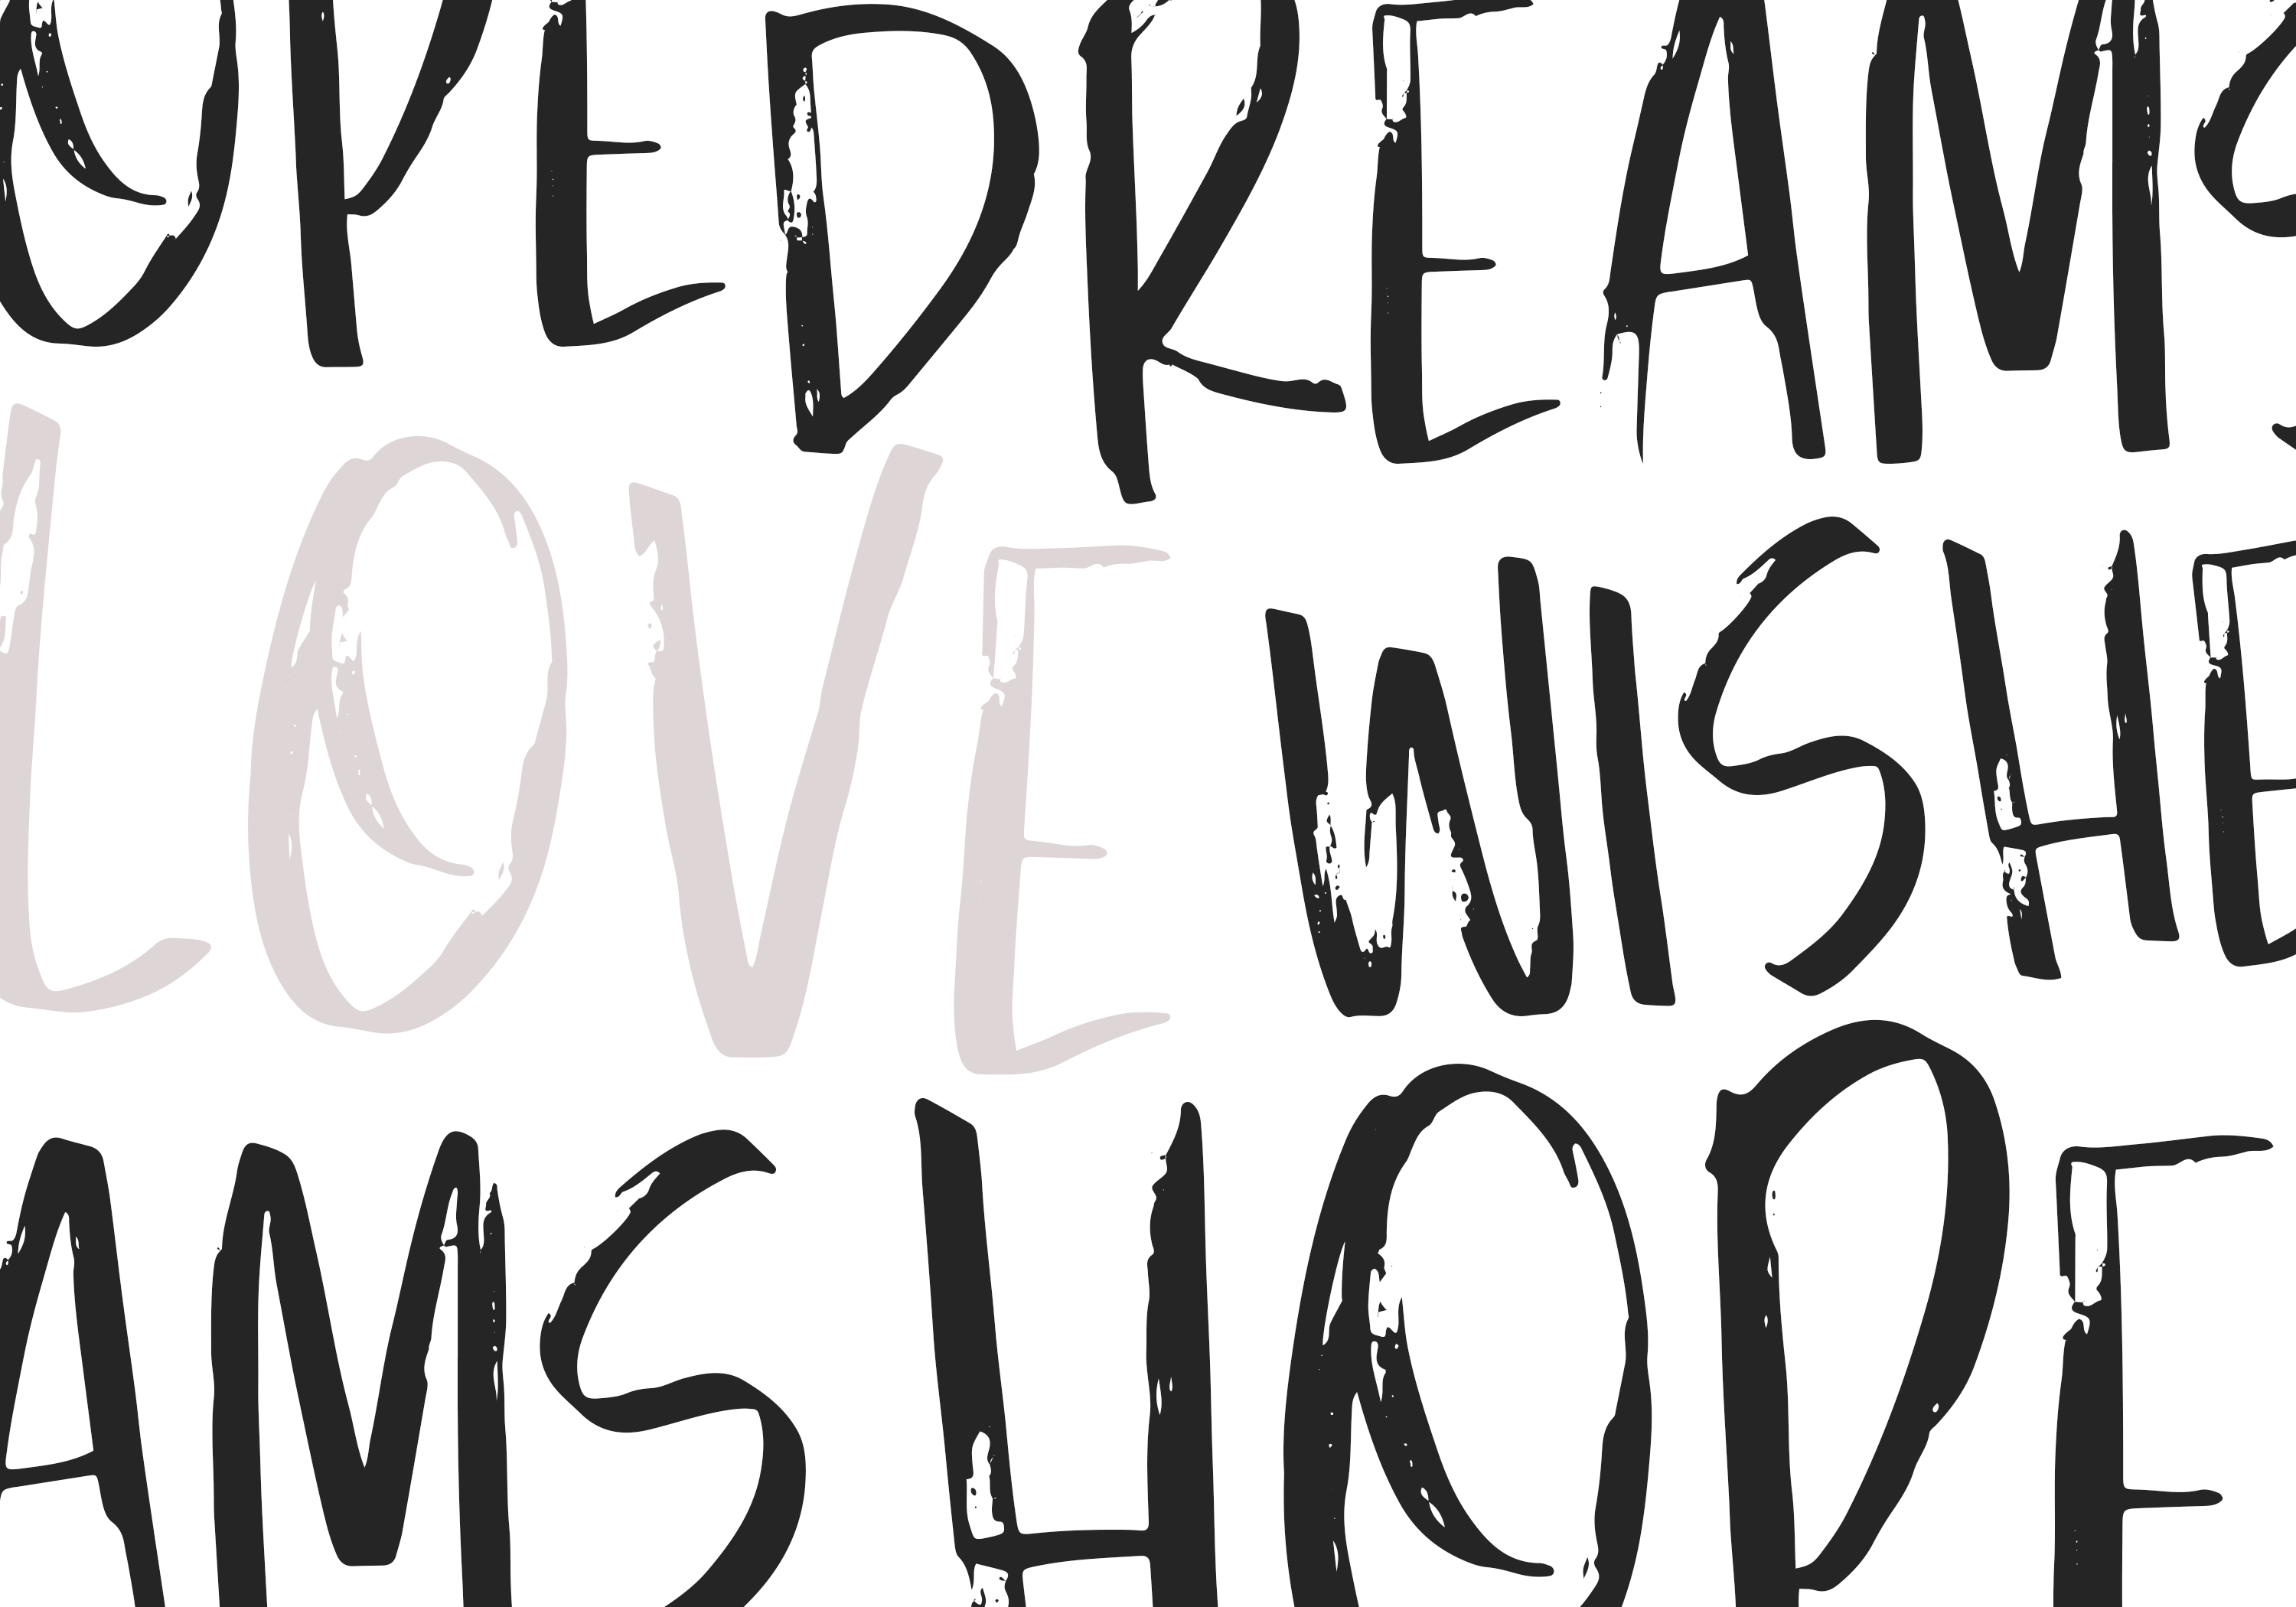 OPE DREAMS
LOVE WISHE
AMS HOPE